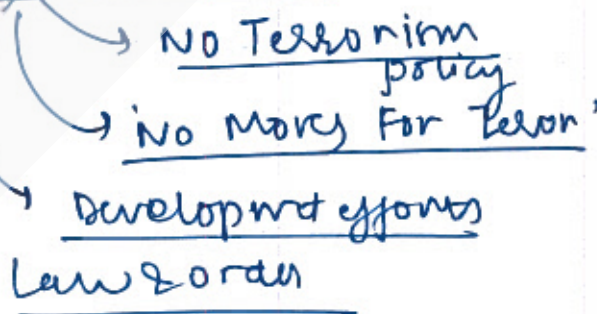 No Terrorism
policy
'No Money For Terror'
Development efforts
Law & order